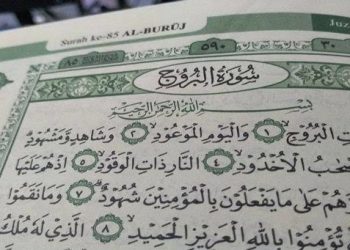 Surah ke-85 AL-BURŪJ ٥٩٠ Juz ٣٠
سُورَةُ الْبُرُوجِ
بِسْمِ اللَّهِ الرَّحْمَٰنِ الرَّحِيمِ
الْبُرُوجِ ١ وَالْيَوْمِ الْمَوْعُودِ ٢ وَشَاهِدٍ وَمَشْهُودٍ
الْأُخْدُودِ ٤ النَّارِ ذَاتِ الْوَقُودِ ٥ إِذْ هُمْ عَلَيْهَا
عَلَىٰ مَا يَفْعَلُونَ بِالْمُؤْمِنِينَ شُهُودٌ ٧ وَمَا نَقَمُوا
بِاللَّهِ الْعَزِيزِ الْحَمِيدِ ٨ الَّذِي لَهُ مُلْكُ